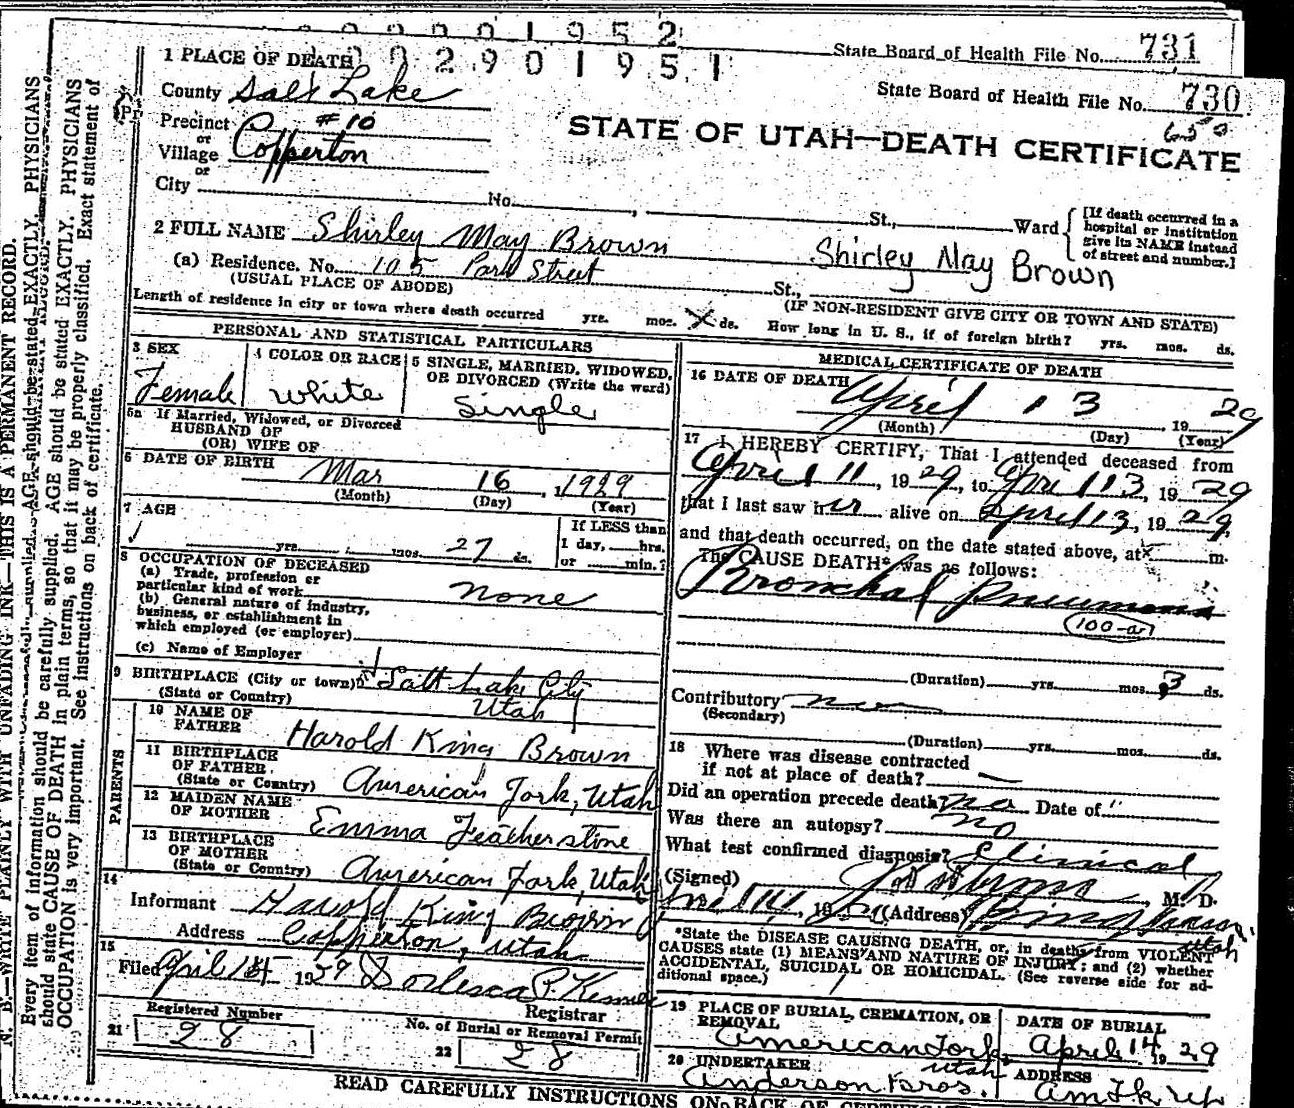 2 0 0 0 0 1 9 5 2
0 0 2 9 0 1 9 5 1
State Board of Health File No. 731
State Board of Health File No. 730
650
STATE OF UTAH—DEATH CERTIFICATE
1 PLACE OF DEATH
County Salt Lake
Precinct #10
or
Village Copperton
or
City No. , St., Ward
[If death occurred in a
hospital or institution
give its NAME instead
of street and number.]
2 FULL NAME Shirley May Brown
Shirley May Brown
(a) Residence. No. 105 Park Street St.,
(USUAL PLACE OF ABODE)
(IF NON-RESIDENT GIVE CITY OR TOWN AND STATE)
Length of residence in city or town where death occurred yrs. mos. X ds. How long in U. S., if of foreign birth? yrs. mos. ds.
PERSONAL AND STATISTICAL PARTICULARS
3 SEX
Female
4 COLOR OR RACE
White
5 SINGLE, MARRIED, WIDOWED,
OR DIVORCED (Write the word)
Single
5a If Married, Widowed, or Divorced
HUSBAND OF
(OR) WIFE OF
6 DATE OF BIRTH Mar 16, 1929
(Month) (Day) (Year)
7 AGE
yrs. mos. 27 ds.
If LESS than
1 day, hrs.
or min.?
8 OCCUPATION OF DECEASED
(a) Trade, profession or
particular kind of work none
(b) General nature of industry,
business, or establishment in
which employed (or employer)
(c) Name of Employer
9 BIRTHPLACE (City or town) Salt Lake City
(State or Country) Utah
PARENTS
10 NAME OF
FATHER Harold King Brown
11 BIRTHPLACE
OF FATHER
(State or Country) American Fork, Utah
12 MAIDEN NAME
OF MOTHER Emma Featherstone
13 BIRTHPLACE
OF MOTHER
(State or Country) American Fork, Utah
14
Informant Harold King Brown
Address Copperton, Utah
15
Filed April 1929
Registrar
Registered Number
21 28
No. of Burial or Removal Permit
22 28
MEDICAL CERTIFICATE OF DEATH
16 DATE OF DEATH
April 13, 1929
(Month) (Day) (Year)
17 I HEREBY CERTIFY, That I attended deceased from
April 11, 1929, to April 13, 1929
that I last saw her alive on April 13, 1929,
and that death occurred, on the date stated above, at m.
The CAUSE DEATH* was as follows:
Bronchial Pneumonia
100-a
(Duration) yrs. mos. 3 ds.
Contributory
(Secondary)
(Duration) yrs. mos. ds.
18 Where was disease contracted
if not at place of death?
Did an operation precede death? no Date of "
Was there an autopsy? no
What test confirmed diagnosis? Clinical
(Signed) , M. D.
19 (Address) Bingham Canyon
Utah
*State the DISEASE CAUSING DEATH, or, in deaths from VIOLENT
CAUSES state (1) MEANS AND NATURE OF INJURY; and (2) whether
ACCIDENTAL, SUICIDAL OR HOMICIDAL. (See reverse side for ad-
ditional space.)
19 PLACE OF BURIAL, CREMATION, OR
REMOVAL
American Fork
Utah
DATE OF BURIAL
April 14 1929
20 UNDERTAKER
Anderson Bros.
ADDRESS
Am Fk
READ CAREFULLY INSTRUCTIONS ON BACK OF
N. B.—WRITE PLAINLY WITH UNFADING INK—THIS IS A PERMANENT RECORD.
Every item of information should be carefully supplied. AGE should be stated EXACTLY. PHYSICIANS
should state CAUSE OF DEATH in plain terms, so that it may be properly classified. Exact statement of
OCCUPATION is very important. See instructions on back of certificate.